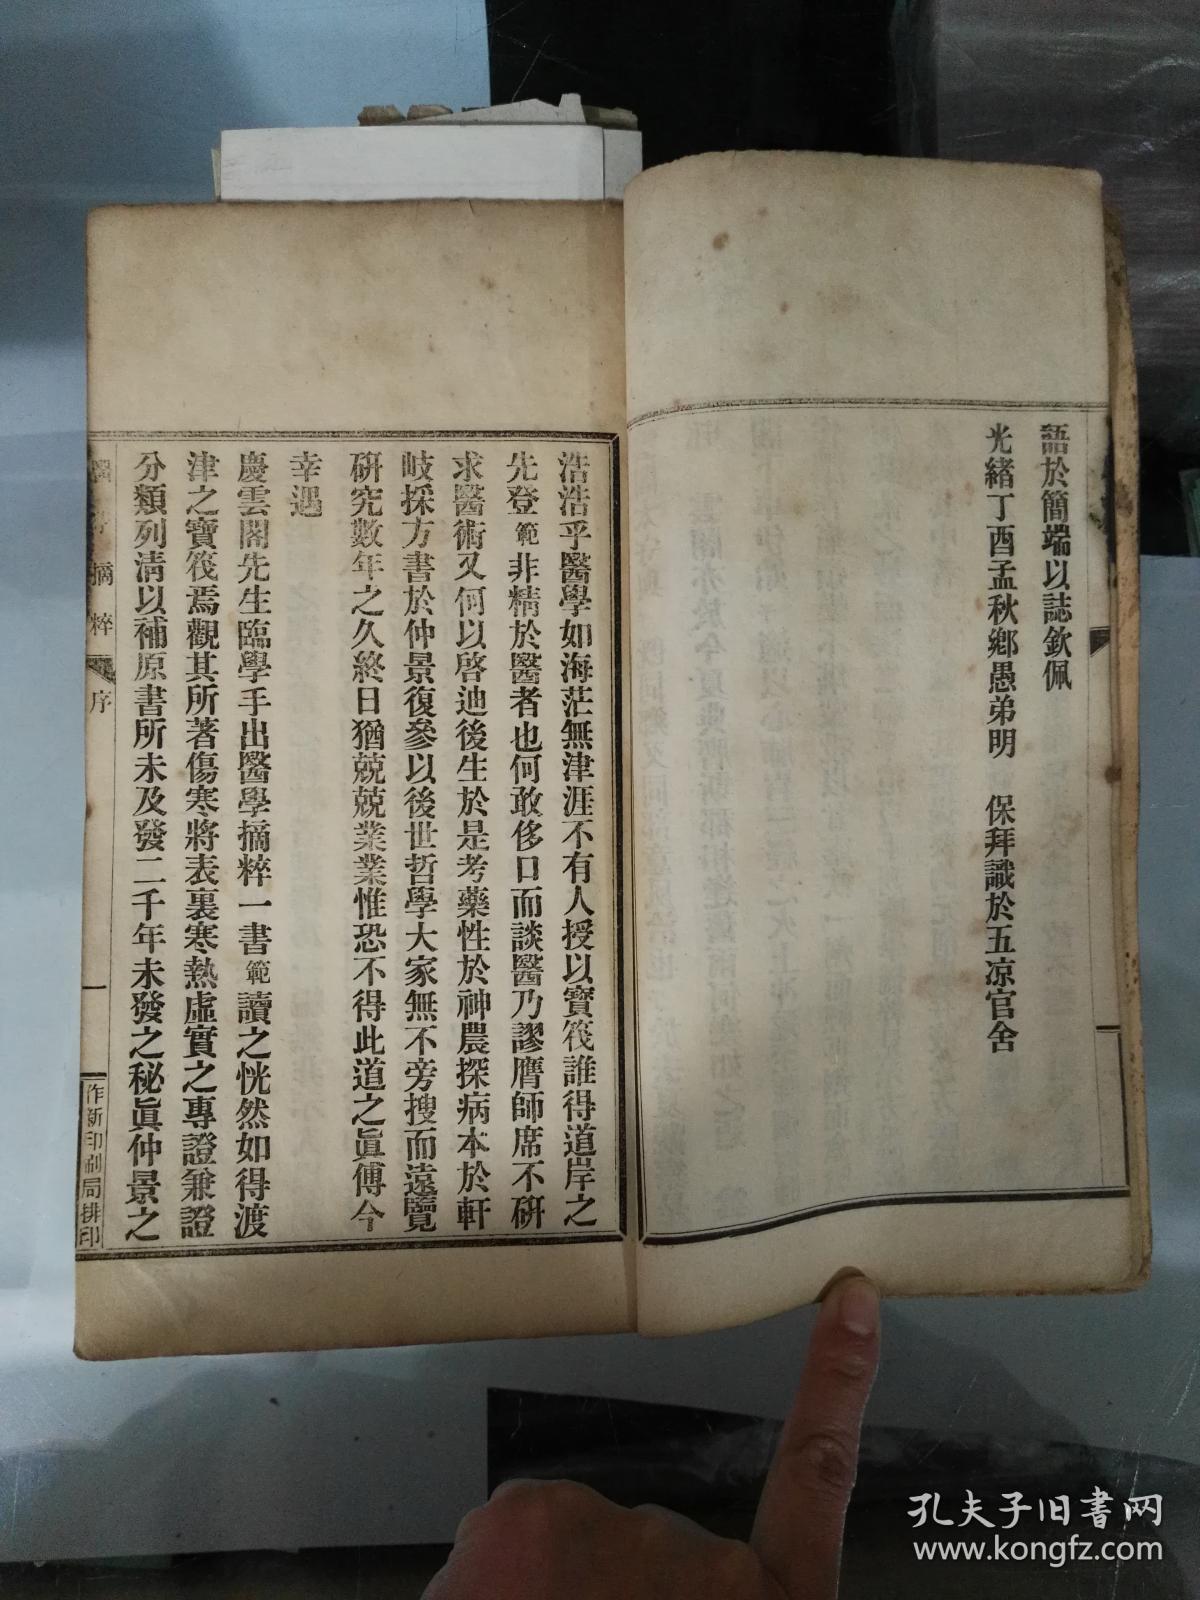 語於簡端以誌欽佩
光緒丁酉孟秋鄉愚弟明　保拜識於五凉官舍
浩浩乎醫學如海茫無津涯不有人授以寶筏誰得道岸之
先登範非精於醫者也何敢侈口而談醫乃謬膺師席不研
求醫術又何以啓迪後生於是考藥性於神農探病本於軒
岐採方書於仲景復參以後世哲學大家無不旁搜而遠覽
研究數年之久終日猶兢兢業業惟恐不得此道之眞傳今
幸遇
慶雲閣先生臨學手出醫學摘粹一書範讀之恍然如得渡
津之寶筏焉觀其所著傷寒將表裏寒熱虛實之專證兼證
分類列淸以補原書所未及發二千年未發之秘眞仲景之
摘粹　序　一　作新印刷局排印
孔夫子旧书网
www.kongfz.com